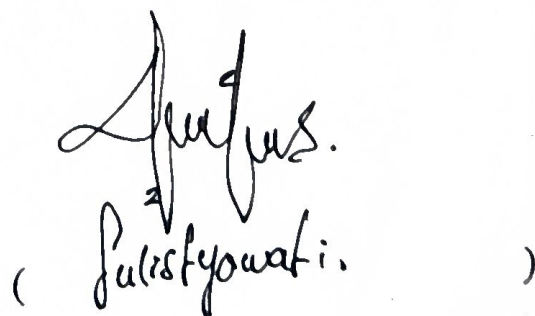 ( Sulistyowati. )